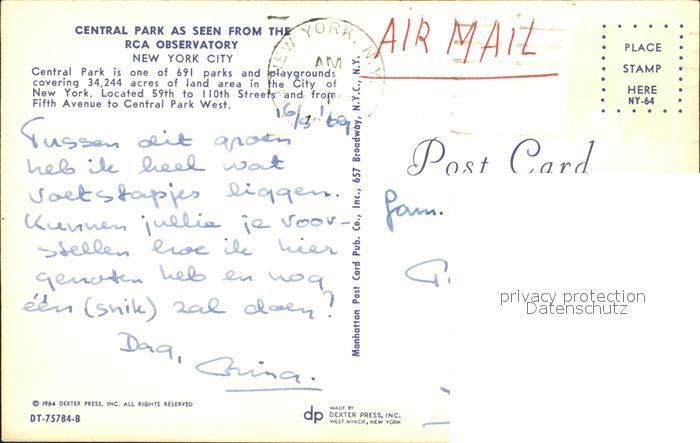 CENTRAL PARK AS SEEN FROM THE
RCA OBSERVATORY
NEW YORK CITY
Central Park is one of 691 parks and playgrounds
covering 34,244 acres of land area in the City of
New York. Located 59th to 110th Streets and from
Fifth Avenue to Central Park West.
NEW YORK, N.Y.
AM
AIR MAIL
PLACE
STAMP
HERE
NY-64
16/9 '69
Tussen dit groen
heb ik heel wat
voetstapjes liggen.
Kunnen jullie je voor-
stellen hoe ik hier
genoten heb en nog
één (snik) zal doen?
Dag,
Manhattan Post Card Pub. Co., Inc., 657 Broadway, N.Y.C., N.Y.
Post Card
fam.
privacy protection
Datenschutz
© 1964 DEXTER PRESS, INC. ALL RIGHTS RESERVED
DT-75784-B
dp
MADE BY
DEXTER PRESS, INC.
WEST NYACK, NEW YORK